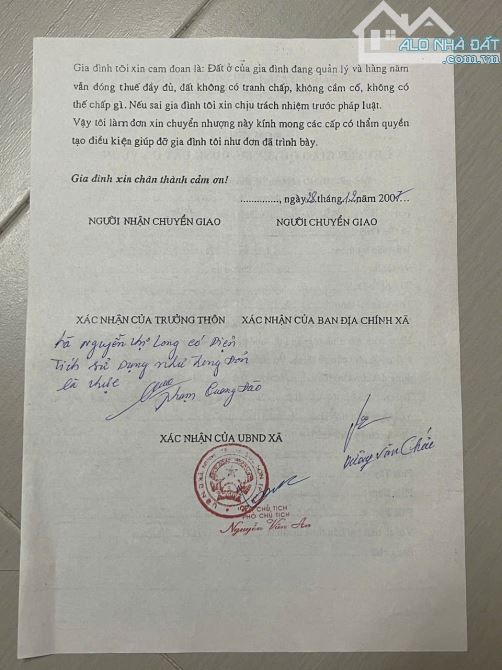 ALO NHÀ ĐẤT
Gia đình tôi xin cam đoan là: Đất ở của gia đình đang quản lý và hàng năm
vẫn đóng thuế đầy đủ, đất không có tranh chấp, không cầm cố, không có
thế chấp gì. Nếu sai gia đình tôi xin chịu trách nhiệm trước pháp luật.
Vậy tôi làm đơn xin chuyển nhượng này kính mong các cấp có thẩm quyền
tạo điều kiện giúp đỡ gia đình tôi như đơn đã trình bày.
Gia đình xin chân thành cảm ơn!
..............., ngày 28 tháng 12 năm 2007...
NGƯỜI NHẬN CHUYỂN GIAO NGƯỜI CHUYỂN GIAO
XÁC NHẬN CỦA TRƯỞNG THÔN XÁC NHẬN CỦA BAN ĐỊA CHÍNH XÃ
Nguyễn Long có Diện
Tích sử Dụng như Trong Đơn
là thực
Phạm Quang Đào
Vương Văn
XÁC NHẬN CỦA UBND XÃ
CHỦ TỊCH
PHÓ CHỦ TỊCH
Nguyễn Văn An